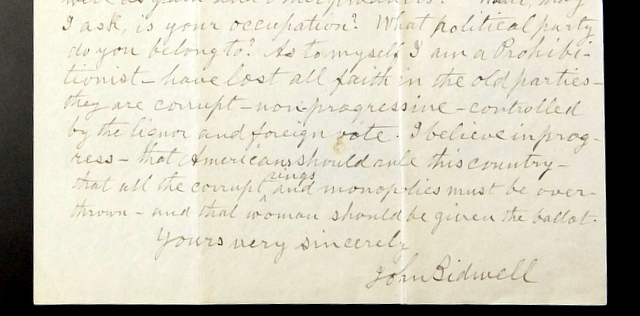 I ask, is your occupation? What political party
do you belong to? As to myself I am a Prohibi-
tionist - have lost all faith in the old parties -
they are corrupt - non-progressive - controlled
by the liquor and foreign vote. I believe in prog-
ress - that Americans should rule this country -
that all the corrupt rings and monoplies must be over-
thrown - and that woman should be given the ballot.
Yours very sincerely
John Bidwell